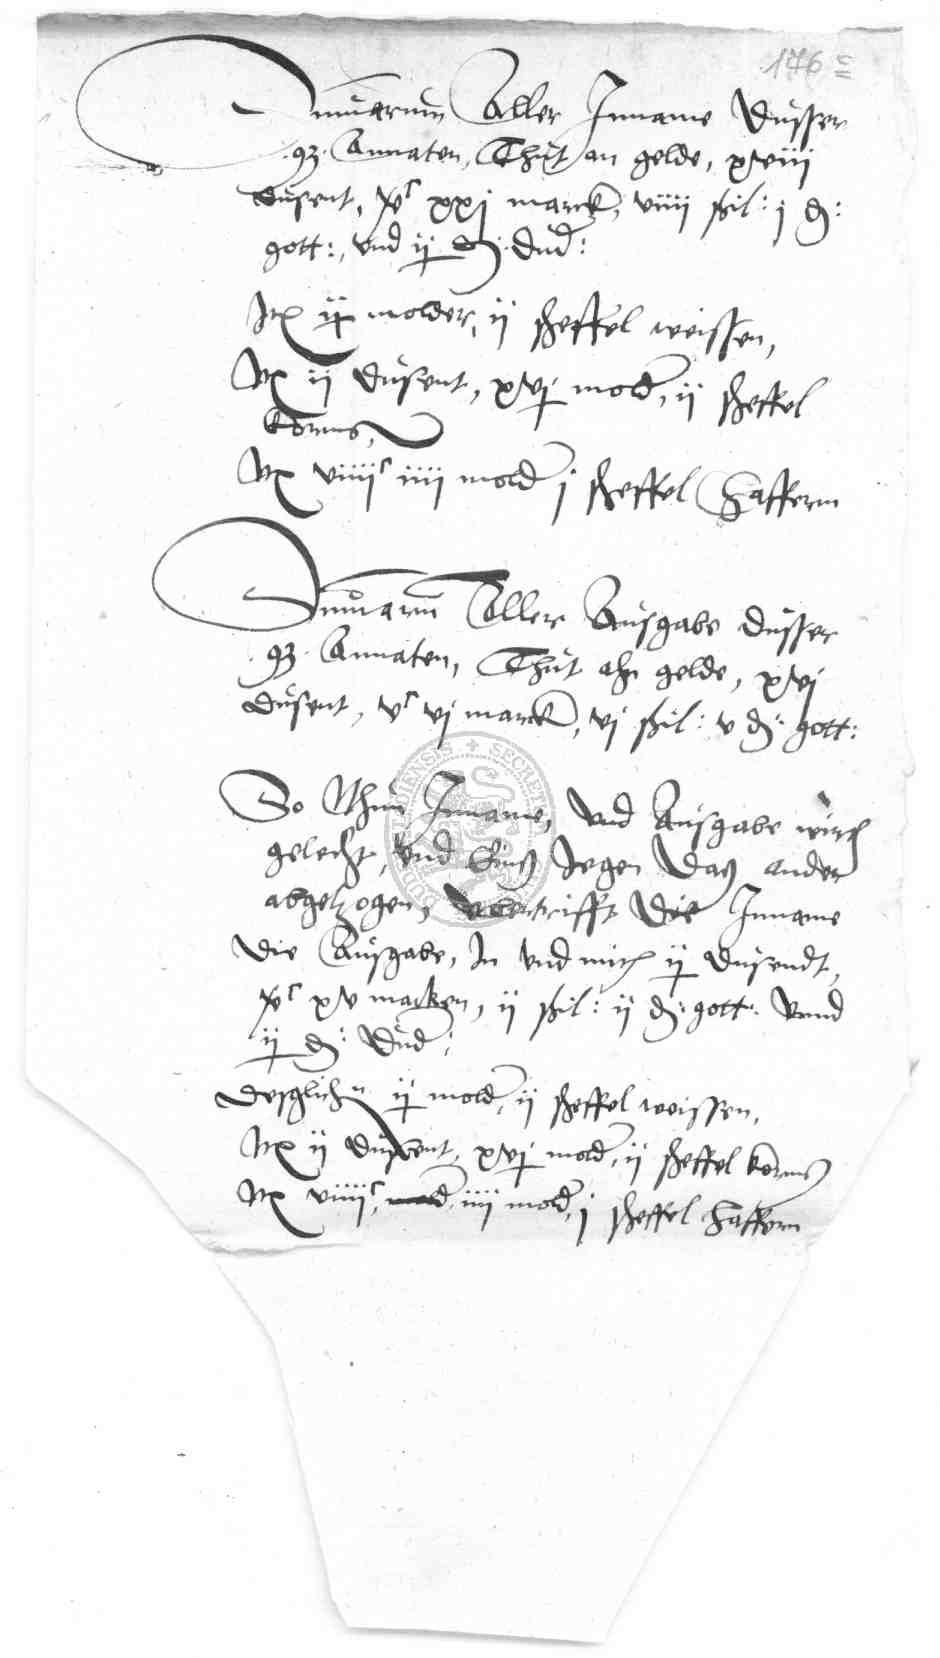 176 c
Summarum Aller Inname dusser
.93. Annaten, Thut an gelde, xviii
dusent, vc xxi marck, viiii ßil: j d:
gott:, vnd ij d: dud:
Itz ij molder, ij scheffel weissen,
Itz ij dusent, xvj mold, ij scheffel
korns,
Itz viiiic iiii mold j scheffel Haffern
Summarum Aller Ausgabe dusser
.93. Annaten, Thut ahn gelde, xvj
dusent, vc vj marck, vj ßil: v d: gott:
So Nhun Inname, vnd Ausgabe wirtz
gelecht, vnd Eins Jegen Das ander
abgetzogen, vbertrifft Die Inname
Die Ausgabe, In vnd mitz ij dusendt,
xv marken, ij ßil: ij d: gott: vnnd
ij d: Dud:
desglichn ij mold, ij scheffel weissen,
Itz ij dusent, xvj mold, ij scheffel korns
Itz viiiic, iiii mold, j scheffel Haffern
SECRET